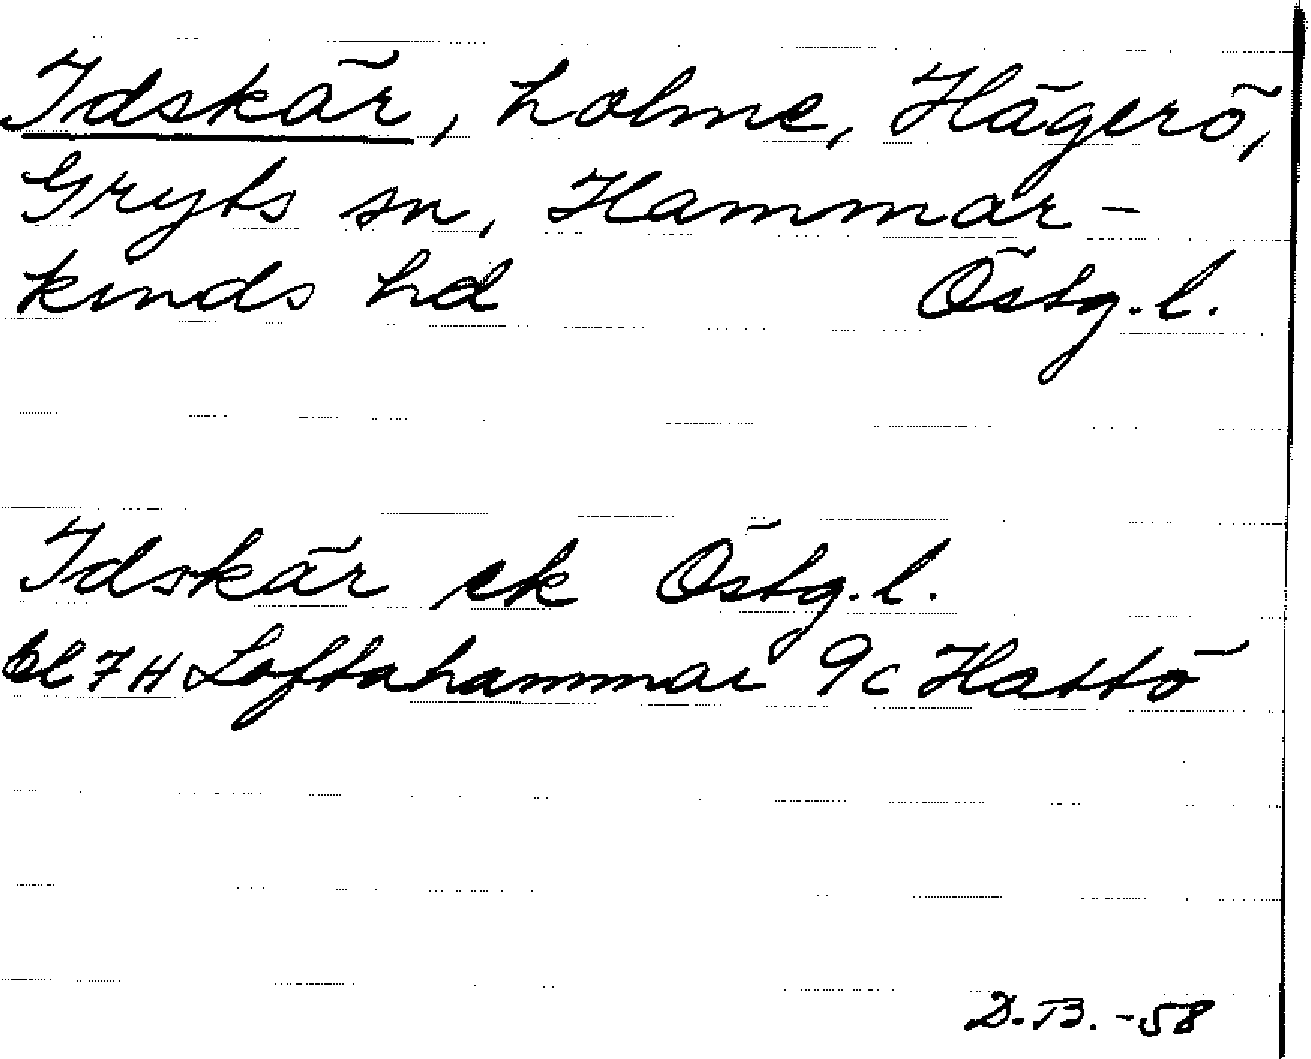 Idskär, holme, Hägerö,
Gryts sn, Hammar-
kinds hd Östg.l.
Idskär ek Östg.l.
bl 7H Loftahammar 9c Hattö
D.B. -58